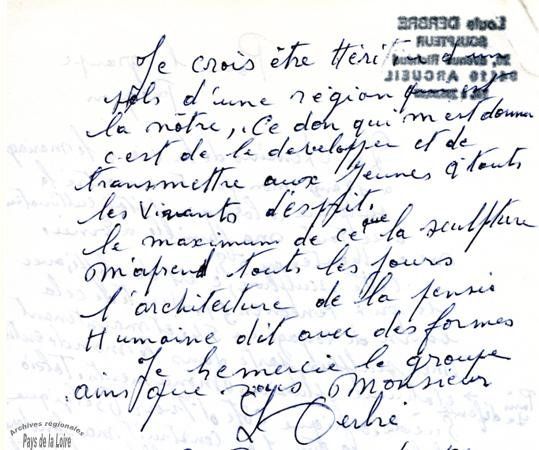 Louis DERBRE
SCULPTEUR
ARCUEIL
Je crois être Hérit d'un
fils d'une région
la nôtre, Ce don qui m'est donner
c'est de le developper et de
transmettre aux Jeunes à touts
les Vivants d'esprit.
le maximum de ce que la sculpture
M'aprend touts les jours
l'architecture de la pensié
Humaine dit avec des formes
Je Remercie le groupe
ainsi que vous Monsieur
L Derbré
Archives régionales
Pays de la Loire